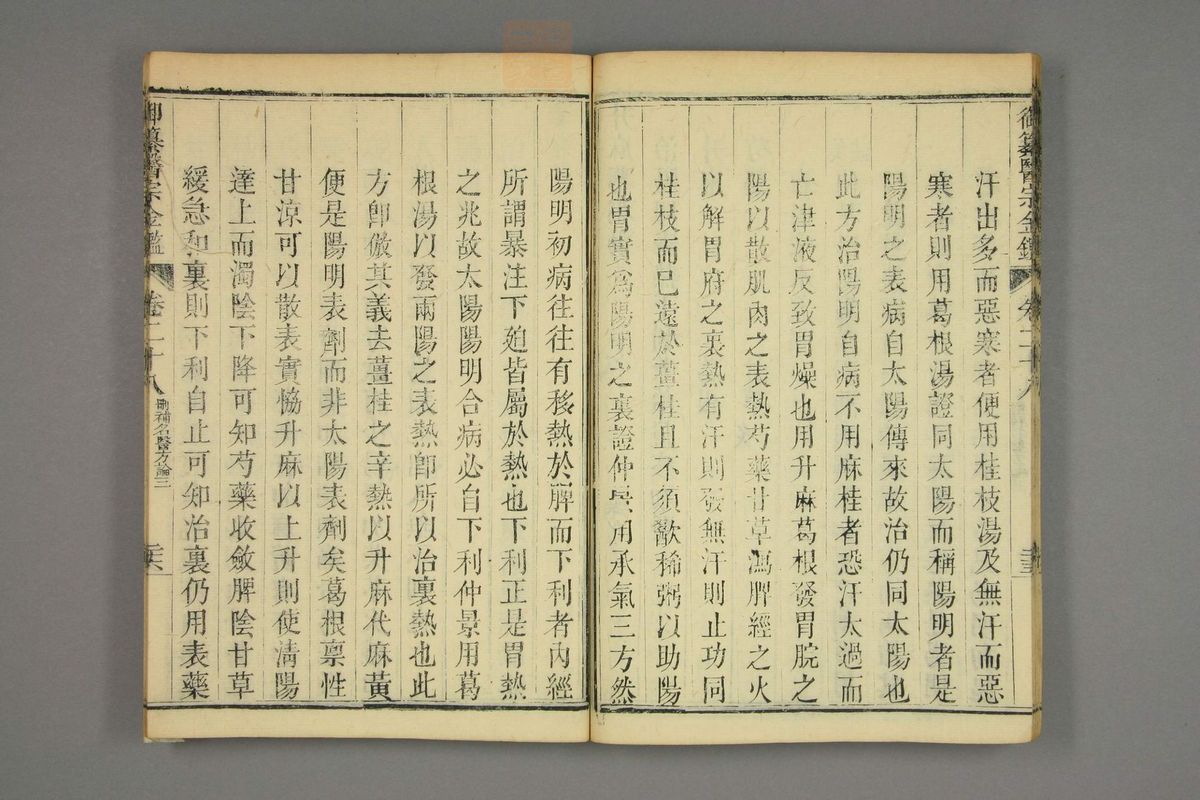 御纂醫宗金鑑
汗出多而惡寒者便用桂枝湯及無汗而惡
寒者則用葛根湯證同太陽而稱陽明者是
陽明之表病自太陽傳來故治仍同太陽也
此方治陽明自病不用麻桂者恐汗太過而
亡津液反致胃燥也用升麻葛根發胃脘之
陽以散肌肉之表熱芍藥甘草瀉脾經之火
以解胃府之裏熱有汗則發無汗則止功同
桂枝而已遠於薑桂且不須歠稀粥以助陽
也胃實為陽明之裏證仲景用承氣三方然
陽明初病往往有移熱於脾而下利者內經
所謂暴注下廹皆屬於熱也下利正是胃熱
之兆故太陽陽明合病必自下利仲景用葛
根湯以發兩陽之表熱卽所以治裏熱也此
方卽倣其義去薑桂之辛熱以升麻代麻黃
便是陽明表劑而非太陽表劑矣葛根稟性
甘涼可以散表實恊升麻以上升則使淸陽
達上而濁陰下降可知芍藥收斂脾陰甘草
緩急和裏則下利自止可知治裏仍用表藥
御纂醫宗金鑑
卷二十八
刪補名醫方論三